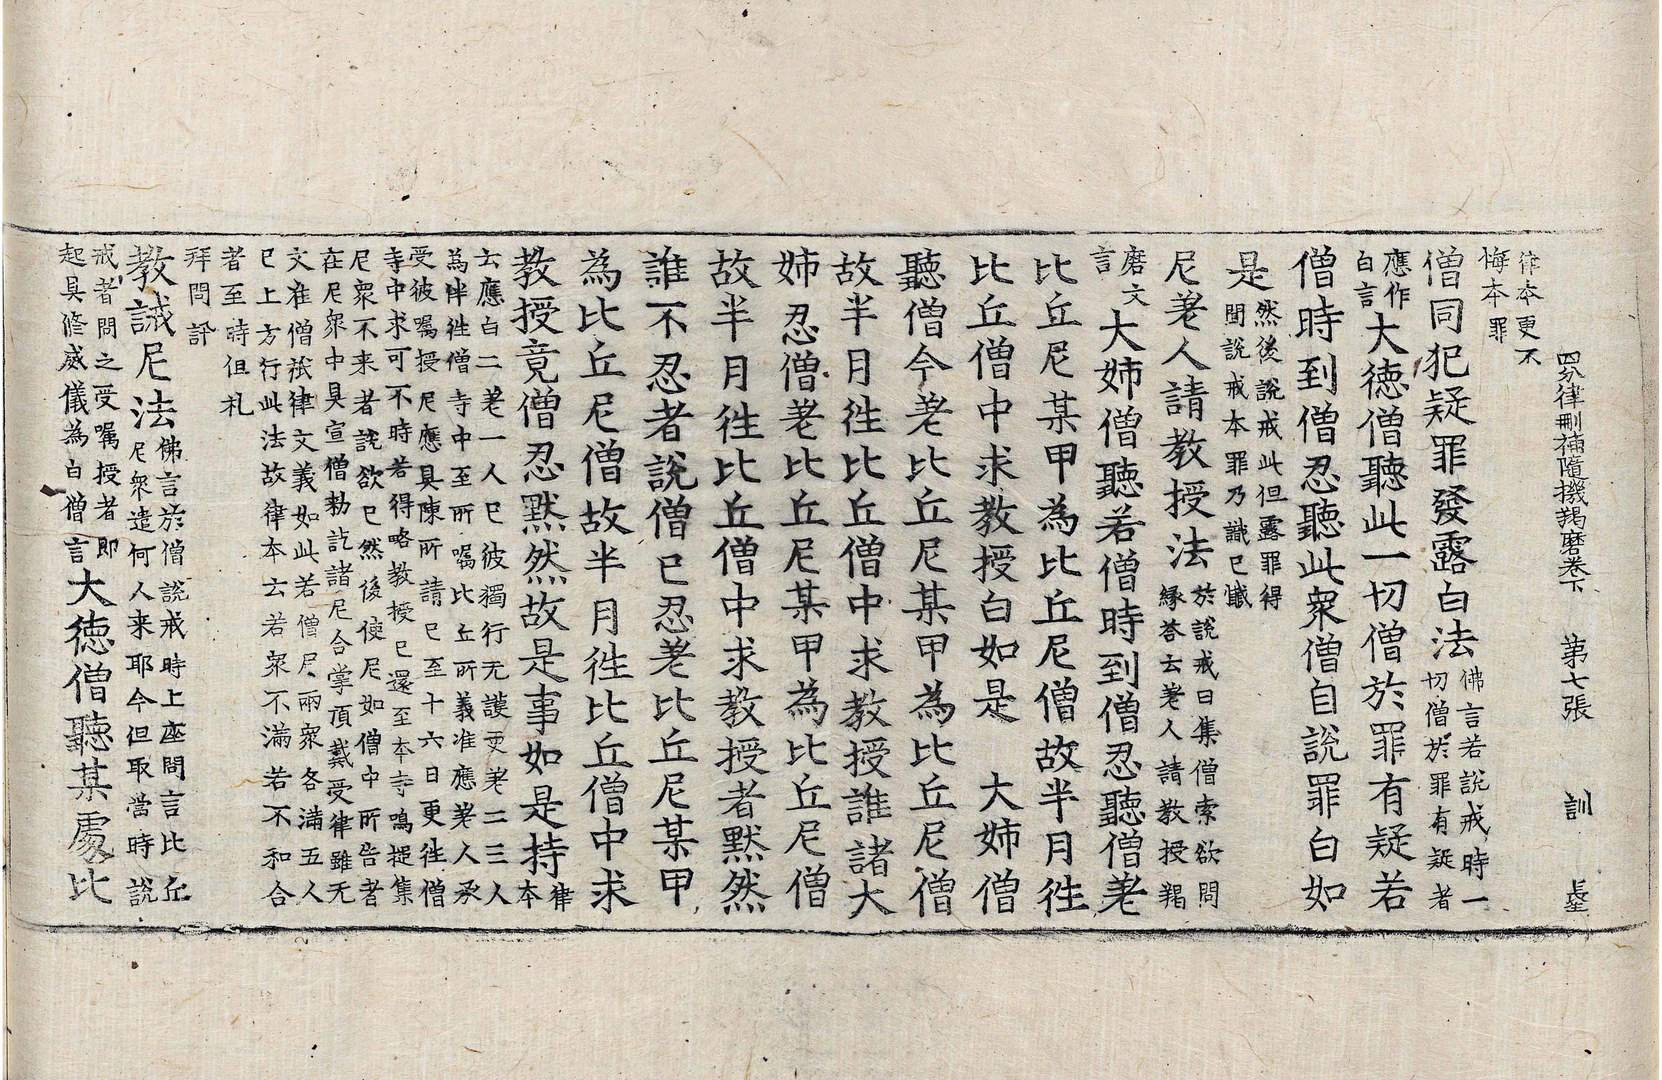 四分律刪補隨機羯磨卷下 第七張 訓
律本更不
悔本罪
僧同犯疑罪發露白法佛言若說戒時一
切僧於罪有疑者
應作
白言大徳僧聽此一切僧於罪有疑若
僧時到僧忍聽此眾僧自說罪白如
是然後說戒此但露罪得
聞說戒本罪乃識已懺
尼差人請教授法於說戒日集僧索欲問
緣答云差人請教授羯
磨文
言大姉僧聽若僧時到僧忍聽僧差
比丘尼某甲為比丘尼僧故半月往
比丘僧中求教授白如是 大姉僧
聽僧今差比丘尼某甲為比丘尼僧
故半月往比丘僧中求教授誰諸大
姉忍僧差比丘尼某甲為比丘尼僧
故半月往比丘僧中求教授者默然
誰不忍者說僧已忍差比丘尼某甲
為比丘尼僧故半月往比丘僧中求
教授竟僧忍默然故是事如是持律
本
云應白二差一人已彼獨行无護更差二三人
為伴往僧寺中至所囑比丘所義准應差人承
受彼囑授尼應具陳所請已至十六日更往僧
寺中求可不時若得略教授已還至本寺鳴揵集
尼眾不来者說欲已然後使尼如僧中所告者
在尼眾中具宣僧勑訖諸尼合掌頂戴受律雖无
文准僧祇律文義如此若僧尼兩眾各滿五人
已上方行此法故律本云若眾不滿若不和合
者至時但礼
拜問訊
教誡尼法佛言於僧說戒時上座問言比丘
尼眾遣何人来耶今但取當時說
戒者問之受囑授者即
起具修威儀為白僧言大徳僧聽某處比